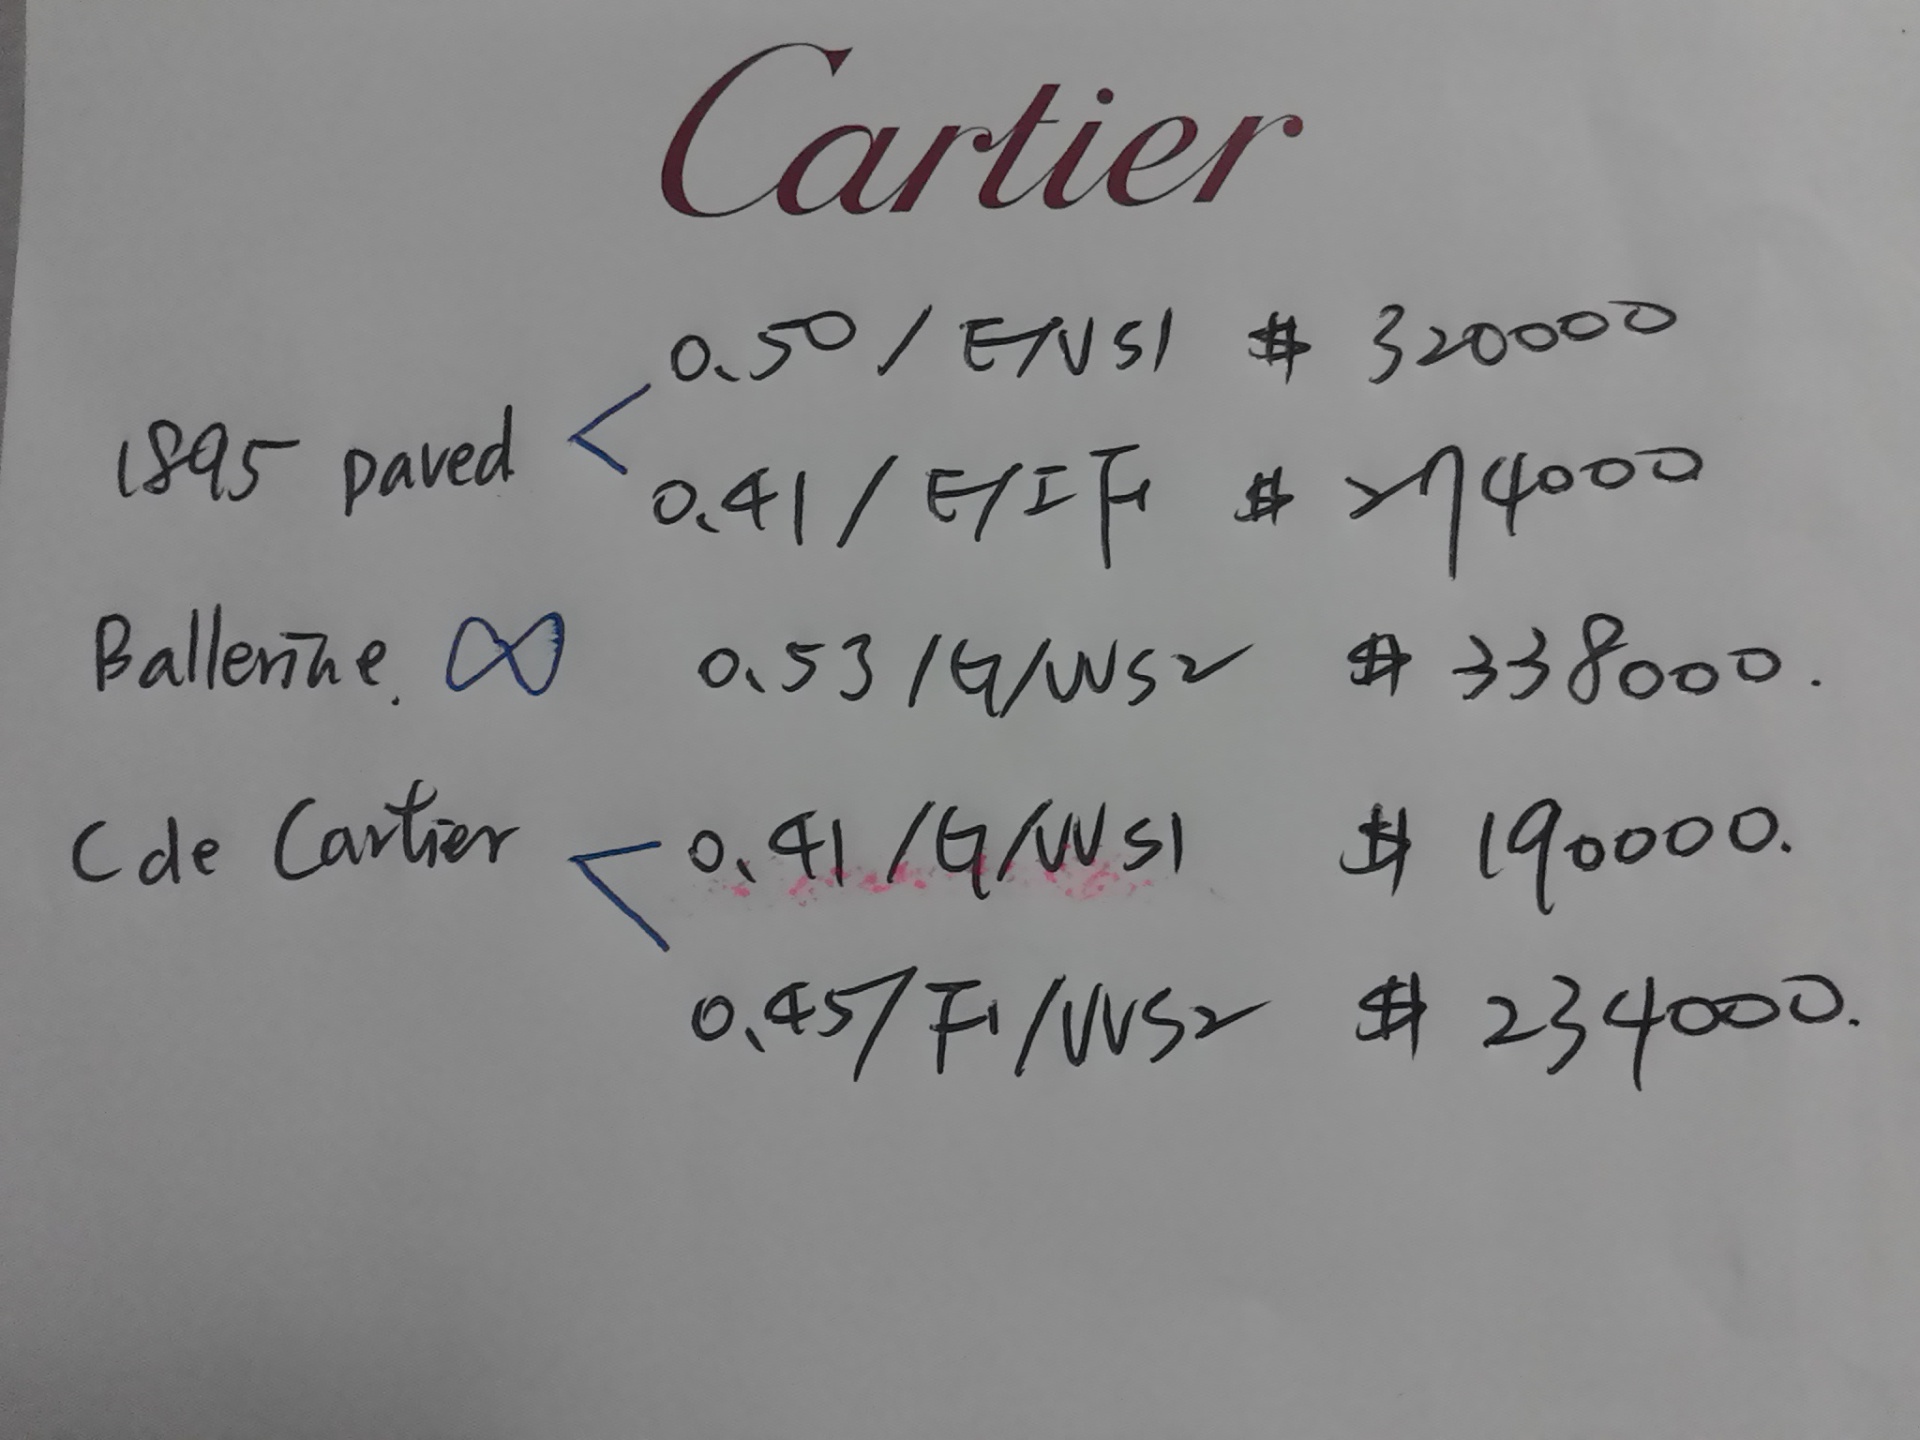 Cartier
1895 paved < 0.50 / E/VS1 $ 320000
0.41 / E/IF $ 274000
Ballerine. ∞ 0.53 /G/VVS2 $ 338000.
C de Cartier < 0.41 /G/VVS1 $ 190000.
0.45/ F /VVS2 $ 234000.